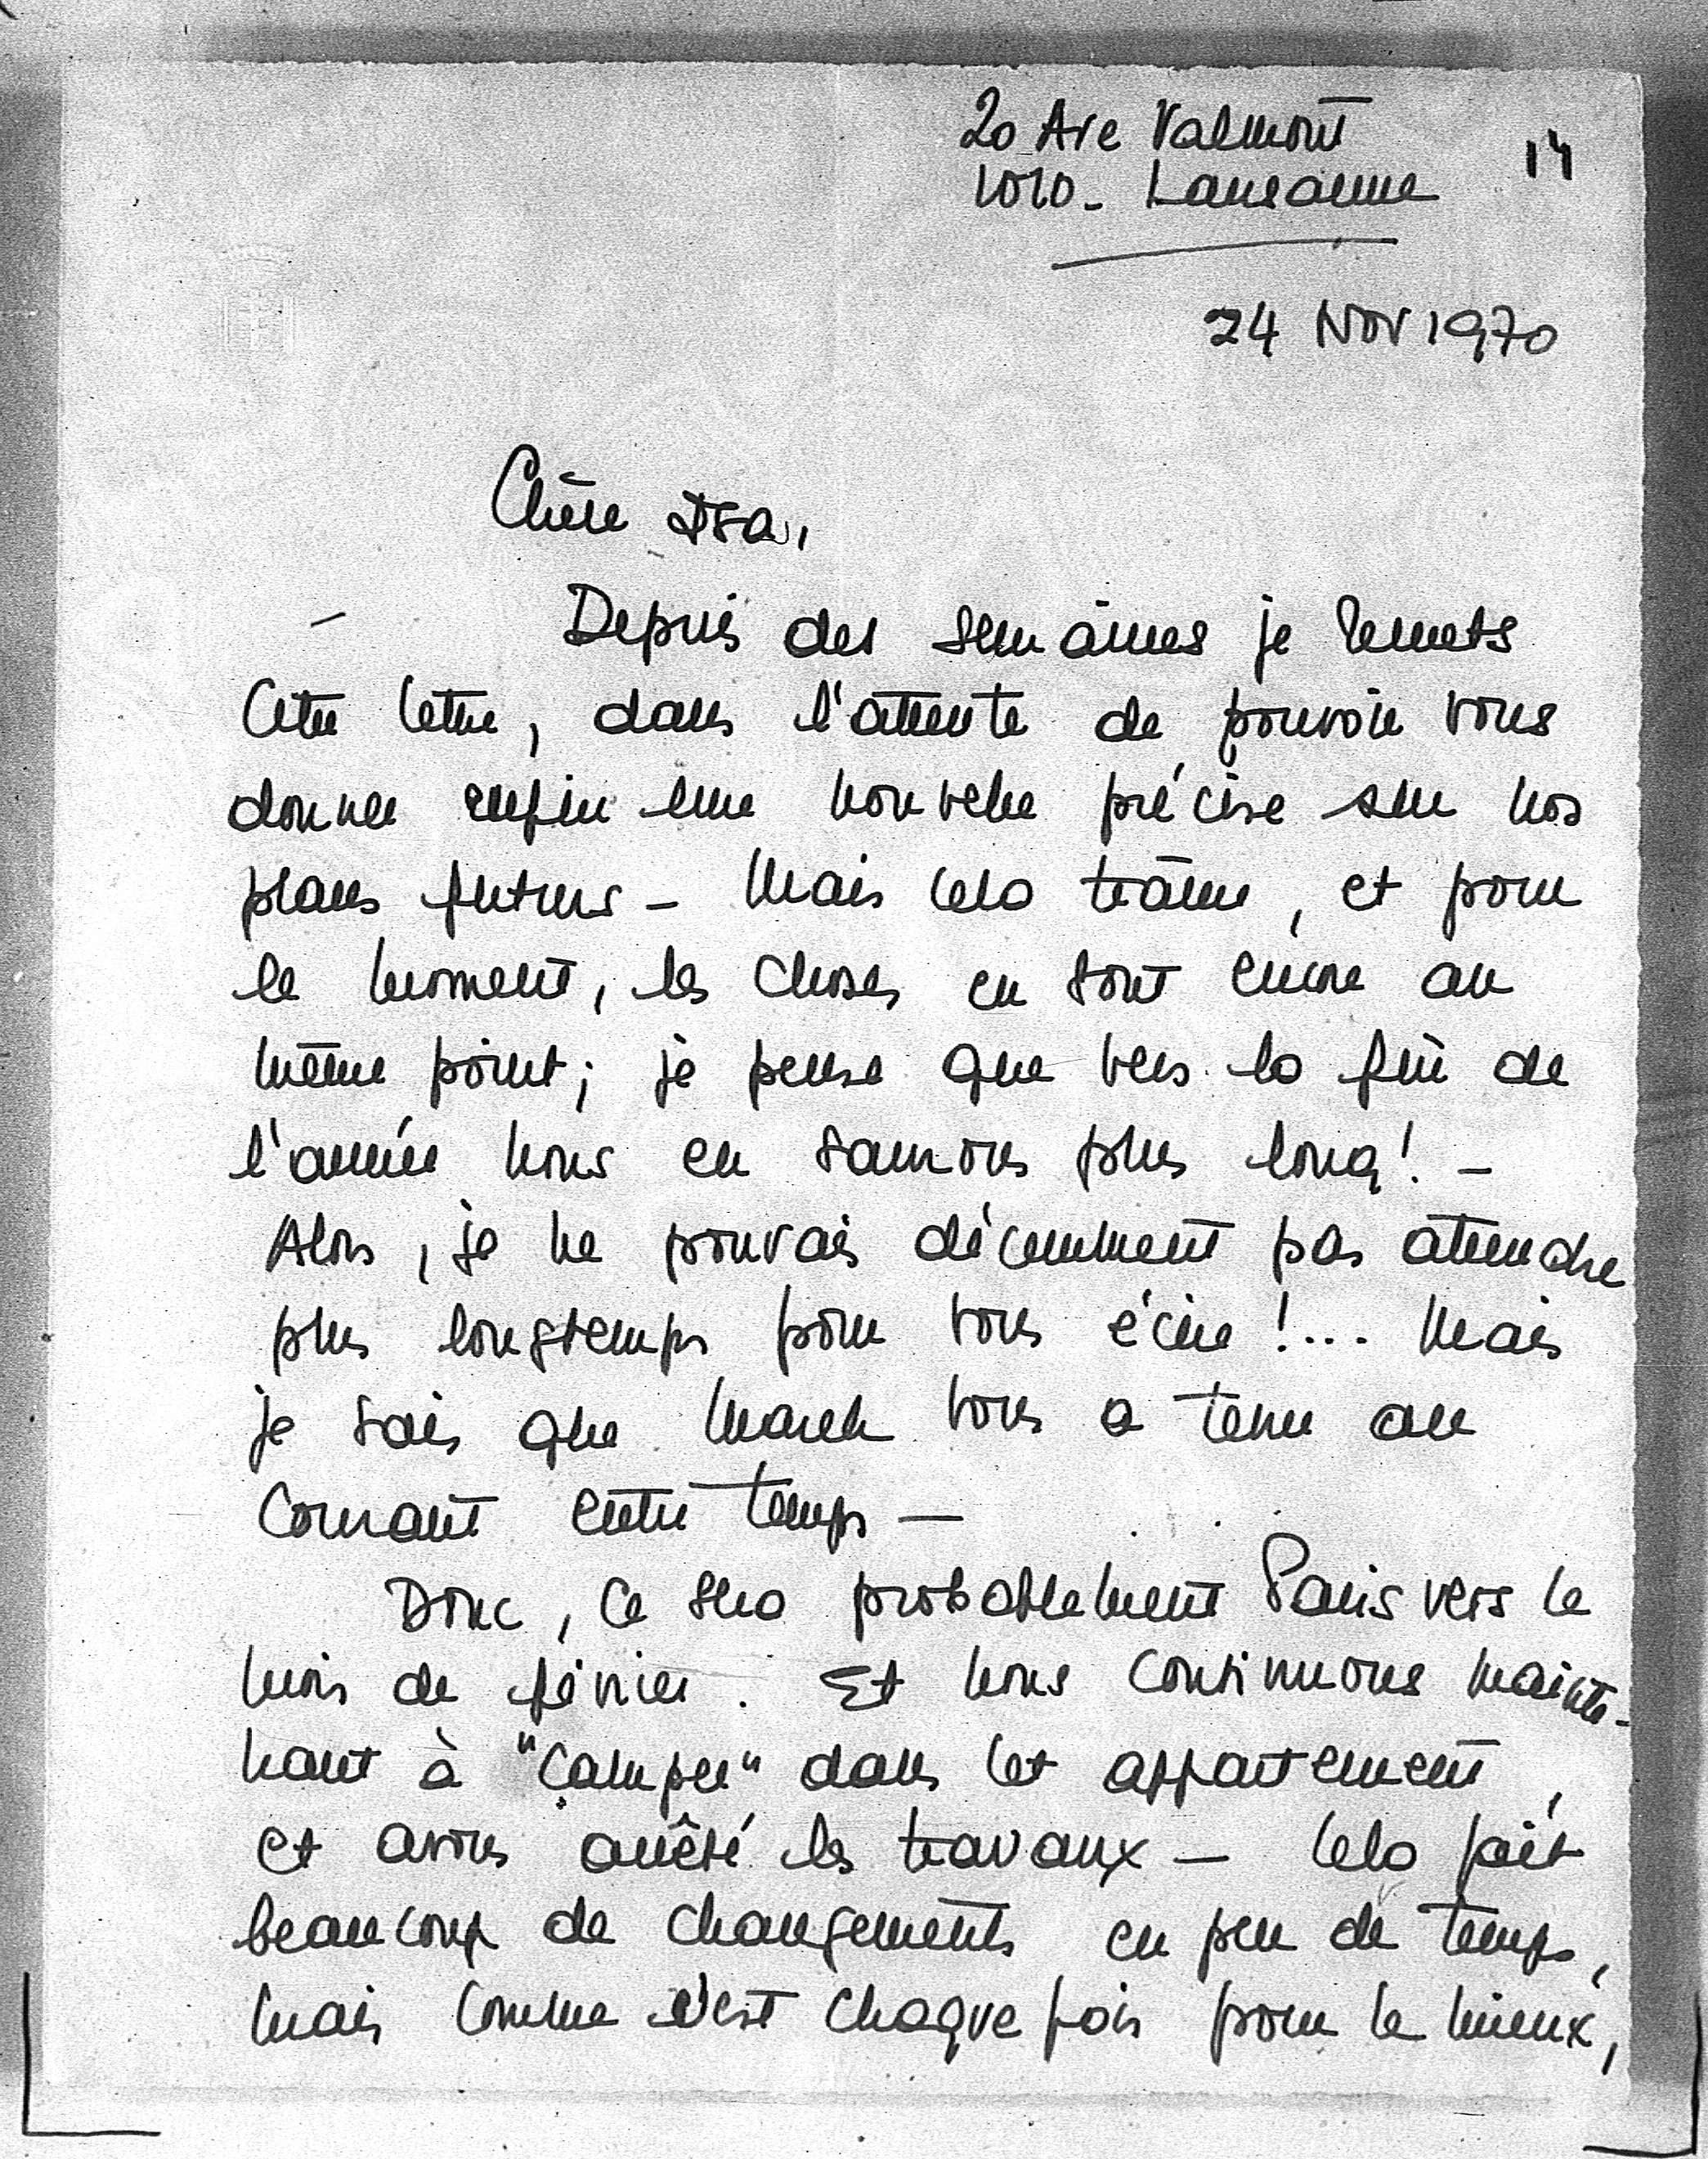 20 Ave Valmont
14
1010 - Lausanne
24 Nov 1970
Chère Isa,
Depuis des semaines je remets
cette lettre, dans l'attente de pouvoir vous
donner enfin une nouvelle précise sur nos
plans futurs - Mais cela traîne, et pour
le moment, les choses en sont encore au
même point; je pense que vers la fin de
l'année nous en saurons plus long! -
Alors, je ne pouvais décemment pas attendre
plus longtemps pour vous écrire!... Mais
je sais que Marek vous a tenu au
courant entre temps -
Donc, ce sera probablement Paris vers le
mois de février. Et nous continuons mainte-
nant à "camper" dans cet appartement,
et avons arrêté les travaux - Cela fait
beaucoup de changements en peu de temps,
mais comme c'est chaque fois pour le mieux,